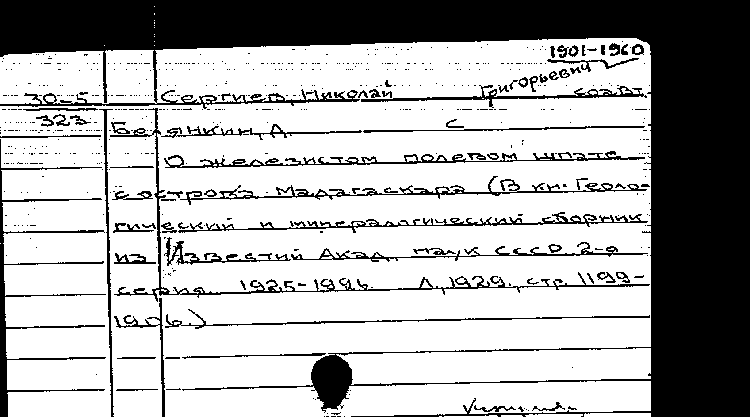 1901-1960
Сергиев, Николай Григорьевич соавт.
30-5
323
Белянкин, Д. С
О железистом полевом шпате
с острова Мадагаскара (В кн. Геоло-
гический и минералогический сборник
из Известий Акад. наук СССР 2-я
серия. 1925-1926. Л., 1929., стр. 1199-
1206.)